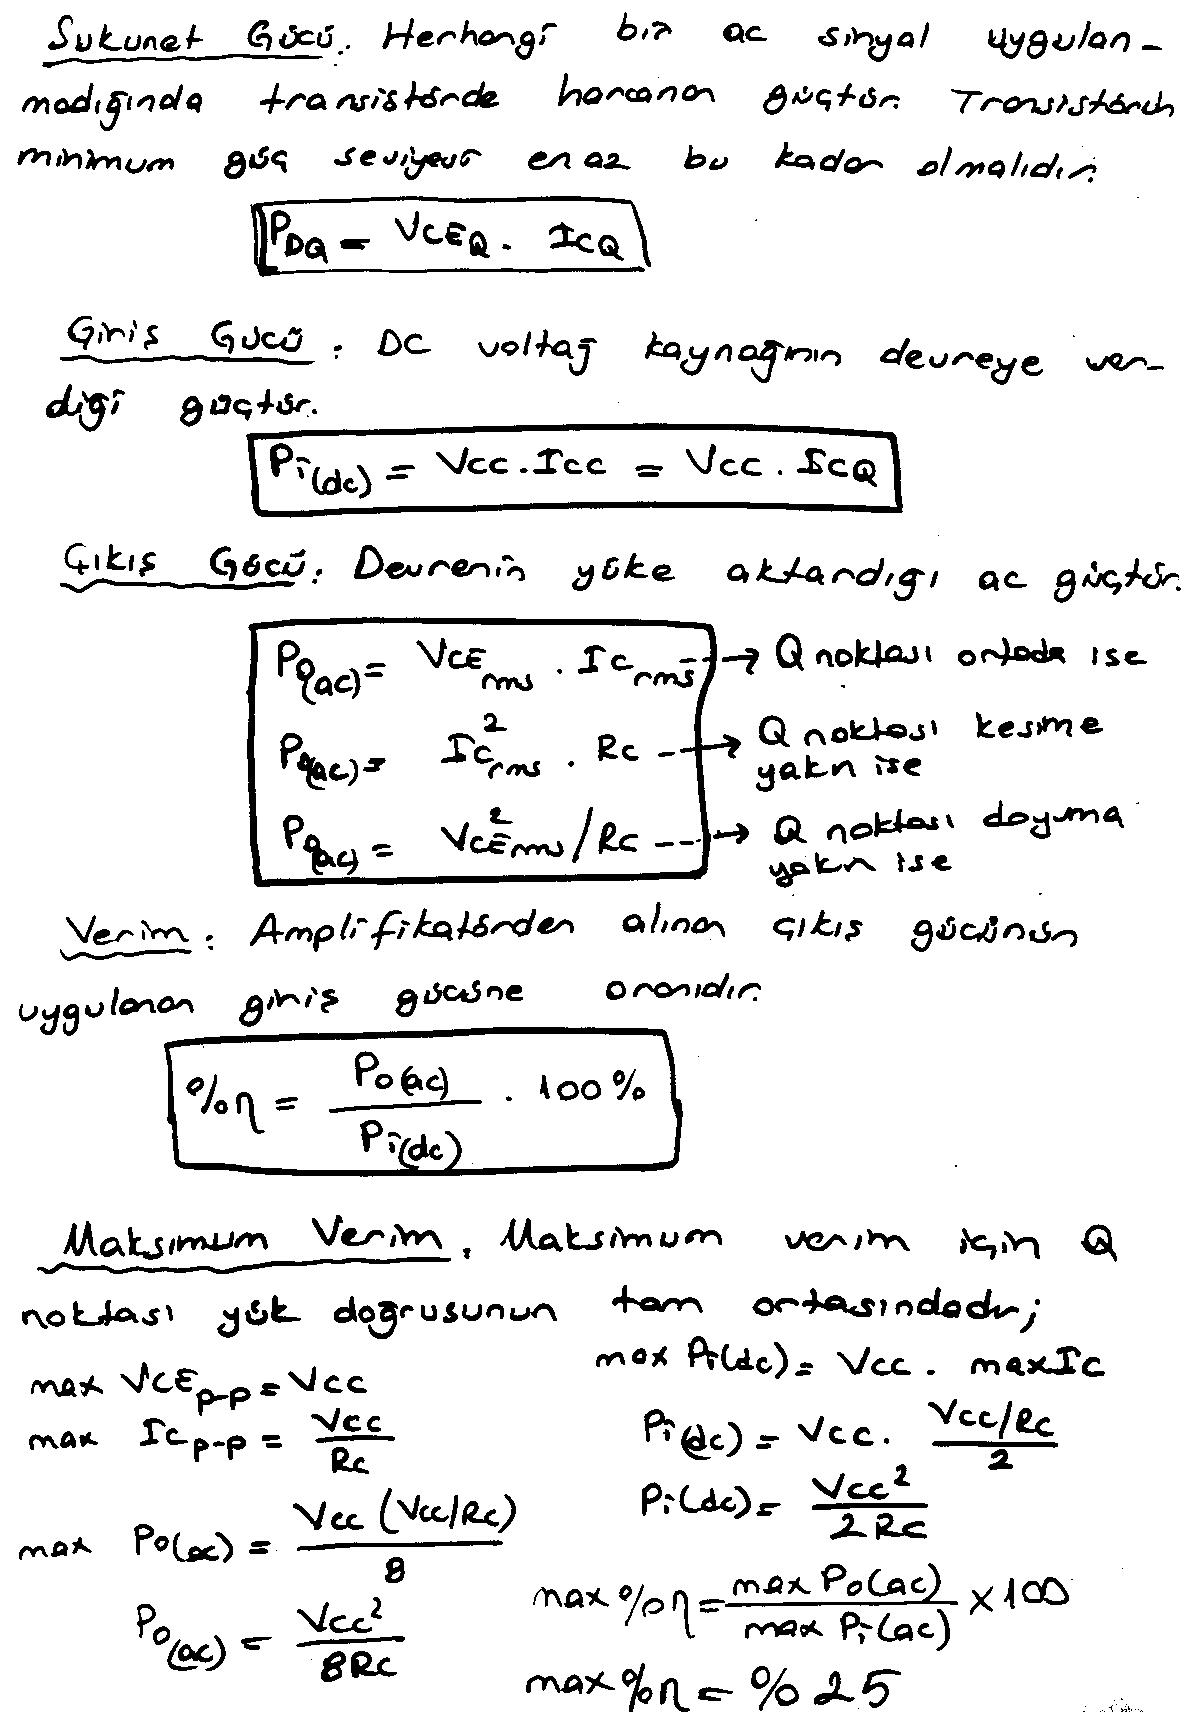 Sukunet Gücü: Herhangi bir ac sinyal uygulan-
madığında transistörde harcanan güçtür. Transistörün
minimum güç seviyesi en az bu kadar olmalıdır.
P_DQ = V_CEQ . I_CQ
Giriş Gücü: DC voltaj kaynağının devreye ver-
diği güçtür.
Pi(dc) = Vcc . Icc = Vcc . I_CQ
Çıkış Gücü: Devrenin yüke aktardığı ac güçtür.
Po(ac) = V_CE rms . Ic rms --→ Q noktası ortada ise
Po(ac) = Ic²rms . Rc --→ Q noktası kesime
yakın ise
Po(ac) = V_CE²rms / Rc --→ Q noktası doyuma
yakın ise
Verim: Amplifikatörden alınan çıkış gücünün
uygulanan giriş gücüne oranıdır.
%η = Po(ac) / Pi(dc) . 100%
Maksimum Verim. Maksimum verim için Q
noktası yük doğrusunun tam ortasındadır;
max V_CE p-p = Vcc
max Ic p-p = Vcc / Rc
max Po(ac) = Vcc (Vcc/Rc) / 8
Po(ac) = Vcc² / 8Rc
max Pi(dc) = Vcc . max Ic
Pi(dc) = Vcc . (Vcc/Rc) / 2
Pi(dc) = Vcc² / 2Rc
max %η = max Po(ac) / max Pi(ac) x 100
max %η = %25